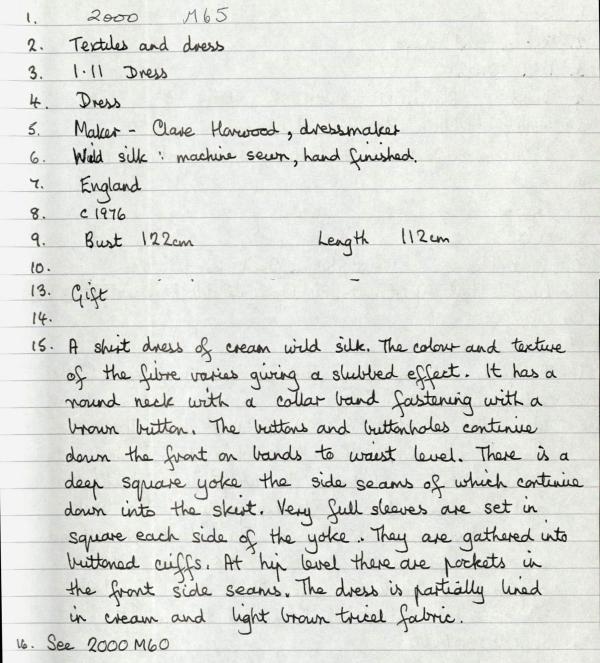 1. 2000 M65
2. Textiles and dress
3. 1.11 Dress
4. Dress
5. Maker - Clare Harwood, dressmaker
6. Wild silk : machine sewn, hand finished.
7. England
8. c 1976
9. Bust 122cm Length 112cm
10.
13. Gift
14.
15. A shirt dress of cream wild silk. The colour and texture
of the fibre varies giving a slubbed effect. It has a
round neck with a collar band fastening with a
brown button. The buttons and buttonholes continue
down the front on bands to waist level. There is a
deep square yoke the side seams of which continue
down into the skirt. Very full sleeves are set in
square each side of the yoke. They are gathered into
buttoned cuffs. At hip level there are pockets in
the front side seams. The dress is partially lined
in cream and light brown tricel fabric.
16. See 2000 M60